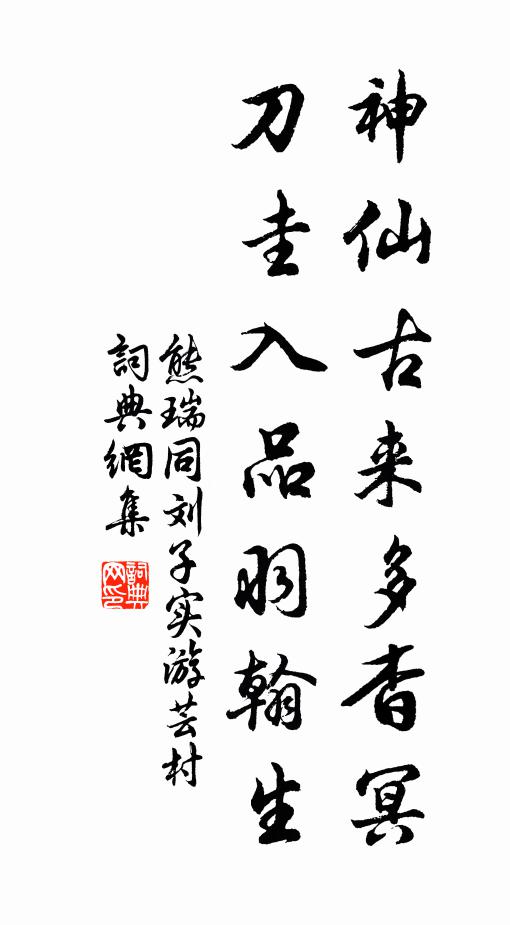 神仙古来多杳冥
刀圭入品羽翰生
熊瑞同刘子实游芸村
詞典網集
詞典网印